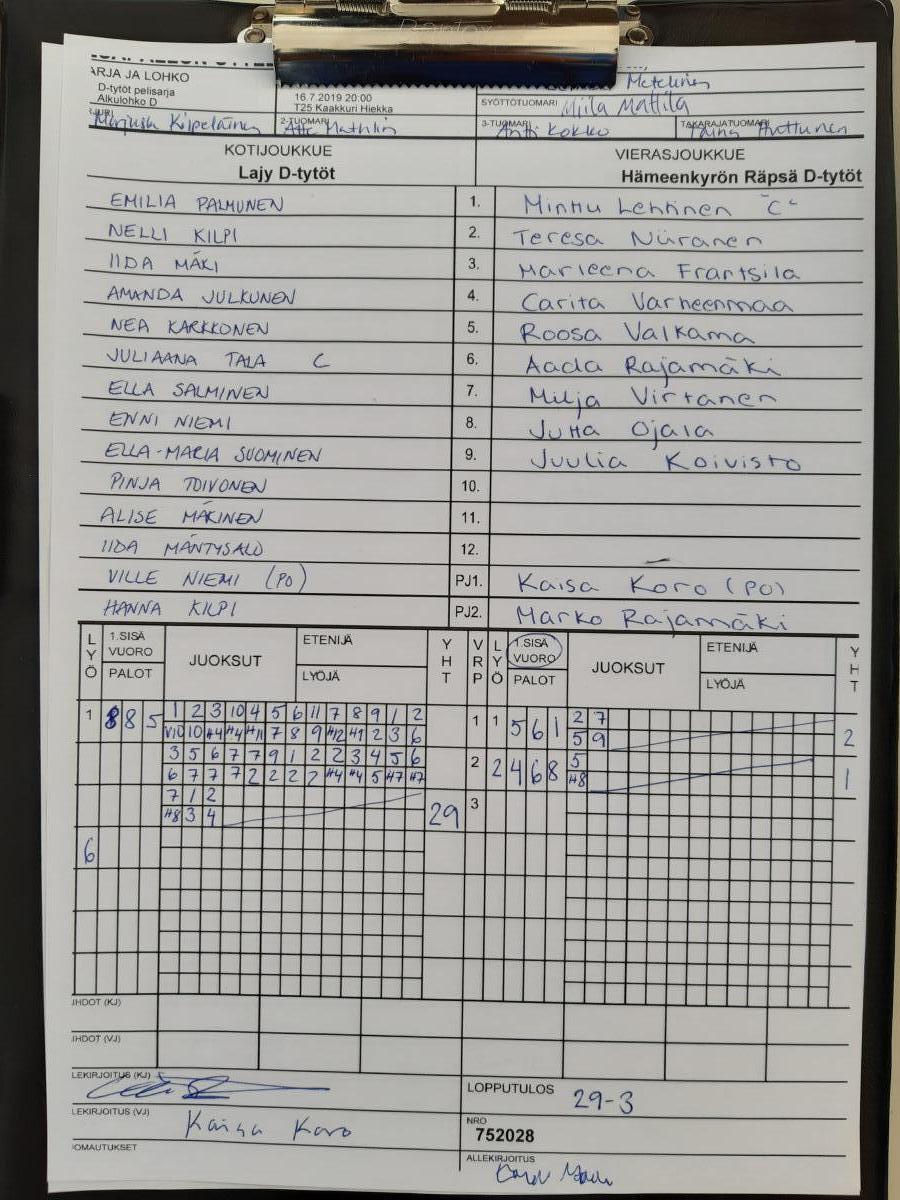 ARJA JA LOHKO
D-tytöt pelisarja
Alkulohko D
16.7.2019 20:00
T25 Kaakkuri Hiekka
SYÖTTÖTUOMARI Miila Mattila
Marjusa Kilpeläinen
2-TUOMARI
3-TUOMARI Antti Kokko
TAKARAJATUOMARI
KOTIJOUKKUE VIERASJOUKKUE
Lajy D-tytöt Hämeenkyrön Räpsä D-tytöt
EMILIA PALMUNEN 1. Minttu Lehtinen "C"
NELLI KILPI 2. Teresa Niiranen
IIDA MÄKI 3. Marleena Frantsila
AMANDA JULKUNEN 4. Carita Varheenmaa
NEA KARKKONEN 5. Roosa Valkama
JULIAANA TALA C 6. Aada Rajamäki
ELLA SALMINEN 7. Milja Virtanen
ENNI NIEMI 8. Jutta Ojala
ELLA-MARIA SUOMINEN 9. Juulia Koivisto
PINJA TOIVONEN 10.
ALISE MÄKINEN 11.
IIDA MÄNTYSALO 12.
VILLE NIEMI (PO) PJ1. Kaisa Koro (PO)
HANNA KILPI PJ2. Marko Rajamäki
LYÖ 1.SISÄ VUORO PALOT JUOKSUT ETENIJÄ LYÖJÄ YHT VRP LYÖ 1.SISÄ VUORO PALOT JUOKSUT ETENIJÄ LYÖJÄ YHT
1 8 8 5 1 2 3 10 4 5 6 11 7 8 9 1 2 1 1 5 6 1 2 7 2
V10 10 #4 #4 #11 7 8 9 #12 #1 2 3 6 5 9
3 5 6 7 7 9 1 2 2 3 4 5 6 2 2 4 6 8 5 1
6 7 7 7 2 2 2 2 #4 #4 5 #7 #7 #8
7 1 2 29 3
#8 3 4
6
JHDOT (KJ)
JHDOT (VJ)
LEKIRJOITUS (KJ)
LOPPUTULOS 29-3
LEKIRJOITUS (VJ) Kaisa Koro
NRO
752028
OMAUTUKSET
ALLEKIRJOITUS